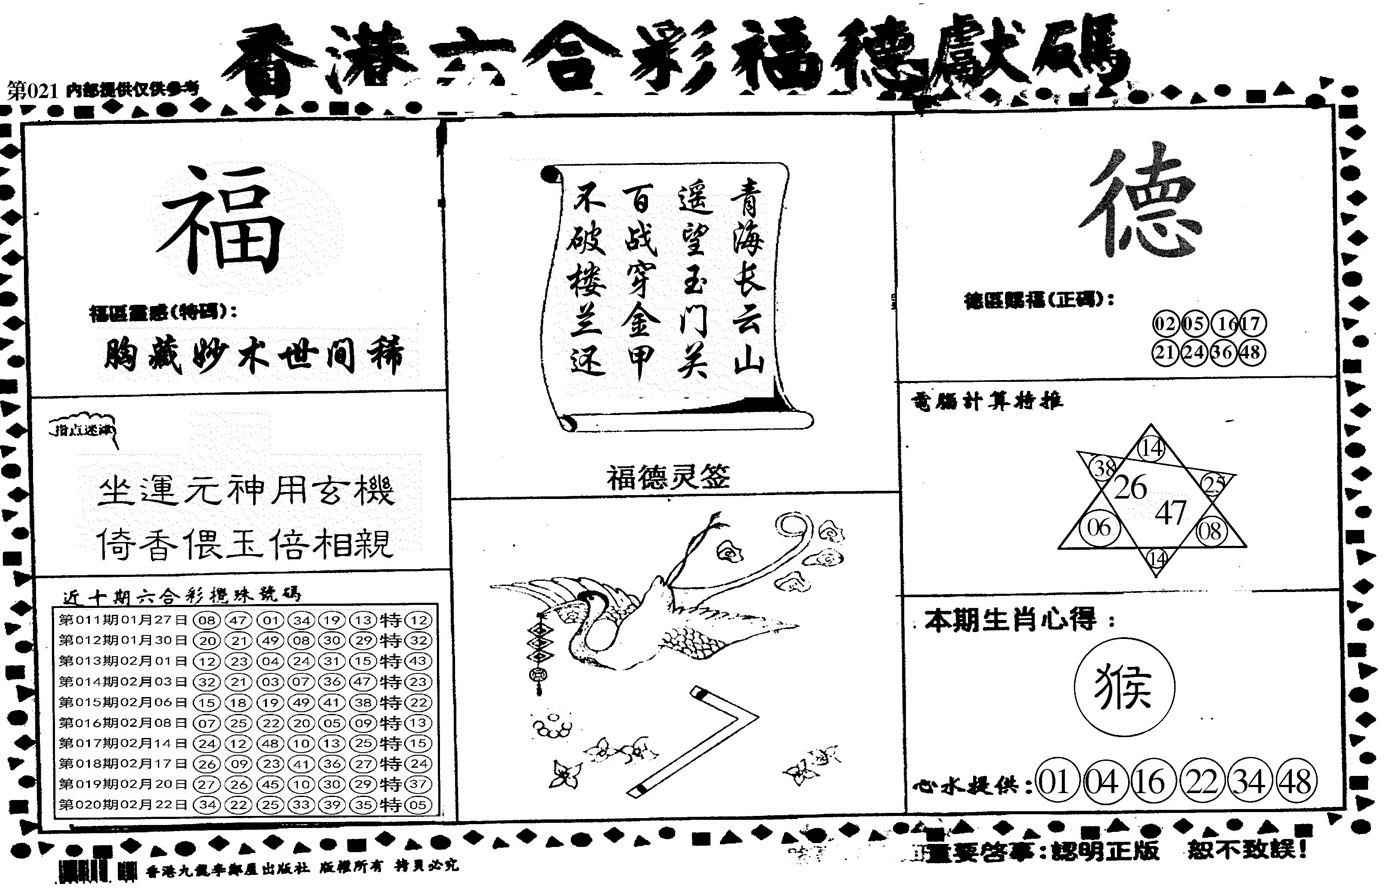 香港六合彩福德獻碼
第021 内部提供仅供参考
福
福區靈感(特碼):
胸藏妙术世间稀
指点迷津
坐運元神用玄機
倚香偎玉倍相親
近十期六合彩攪珠號碼
第011期01月27日 08 47 01 34 19 13 特 12
第012期01月30日 20 21 49 08 30 29 特 32
第013期02月01日 12 23 04 24 31 15 特 43
第014期02月03日 32 21 03 07 36 47 特 23
第015期02月06日 15 18 19 49 41 38 特 22
第016期02月08日 07 25 22 20 05 09 特 13
第017期02月14日 24 12 48 10 13 25 特 15
第018期02月17日 26 09 23 41 36 27 特 24
第019期02月20日 27 26 45 10 30 29 特 37
第020期02月22日 34 22 25 33 39 35 特 05
青海长云山
遥望玉门关
百战穿金甲
不破楼兰还
福德灵签
德
德區賜福(正碼):
02 05 16 17
21 24 36 48
電腦計算特推
14
38
25
26
47
06
08
14
本期生肖心得:
猴
心水提供: 01 04 16 22 34 48
香港九龍李鄭屋出版社 版權所有 拷貝必究
重要啓事:認明正版 恕不致誤!